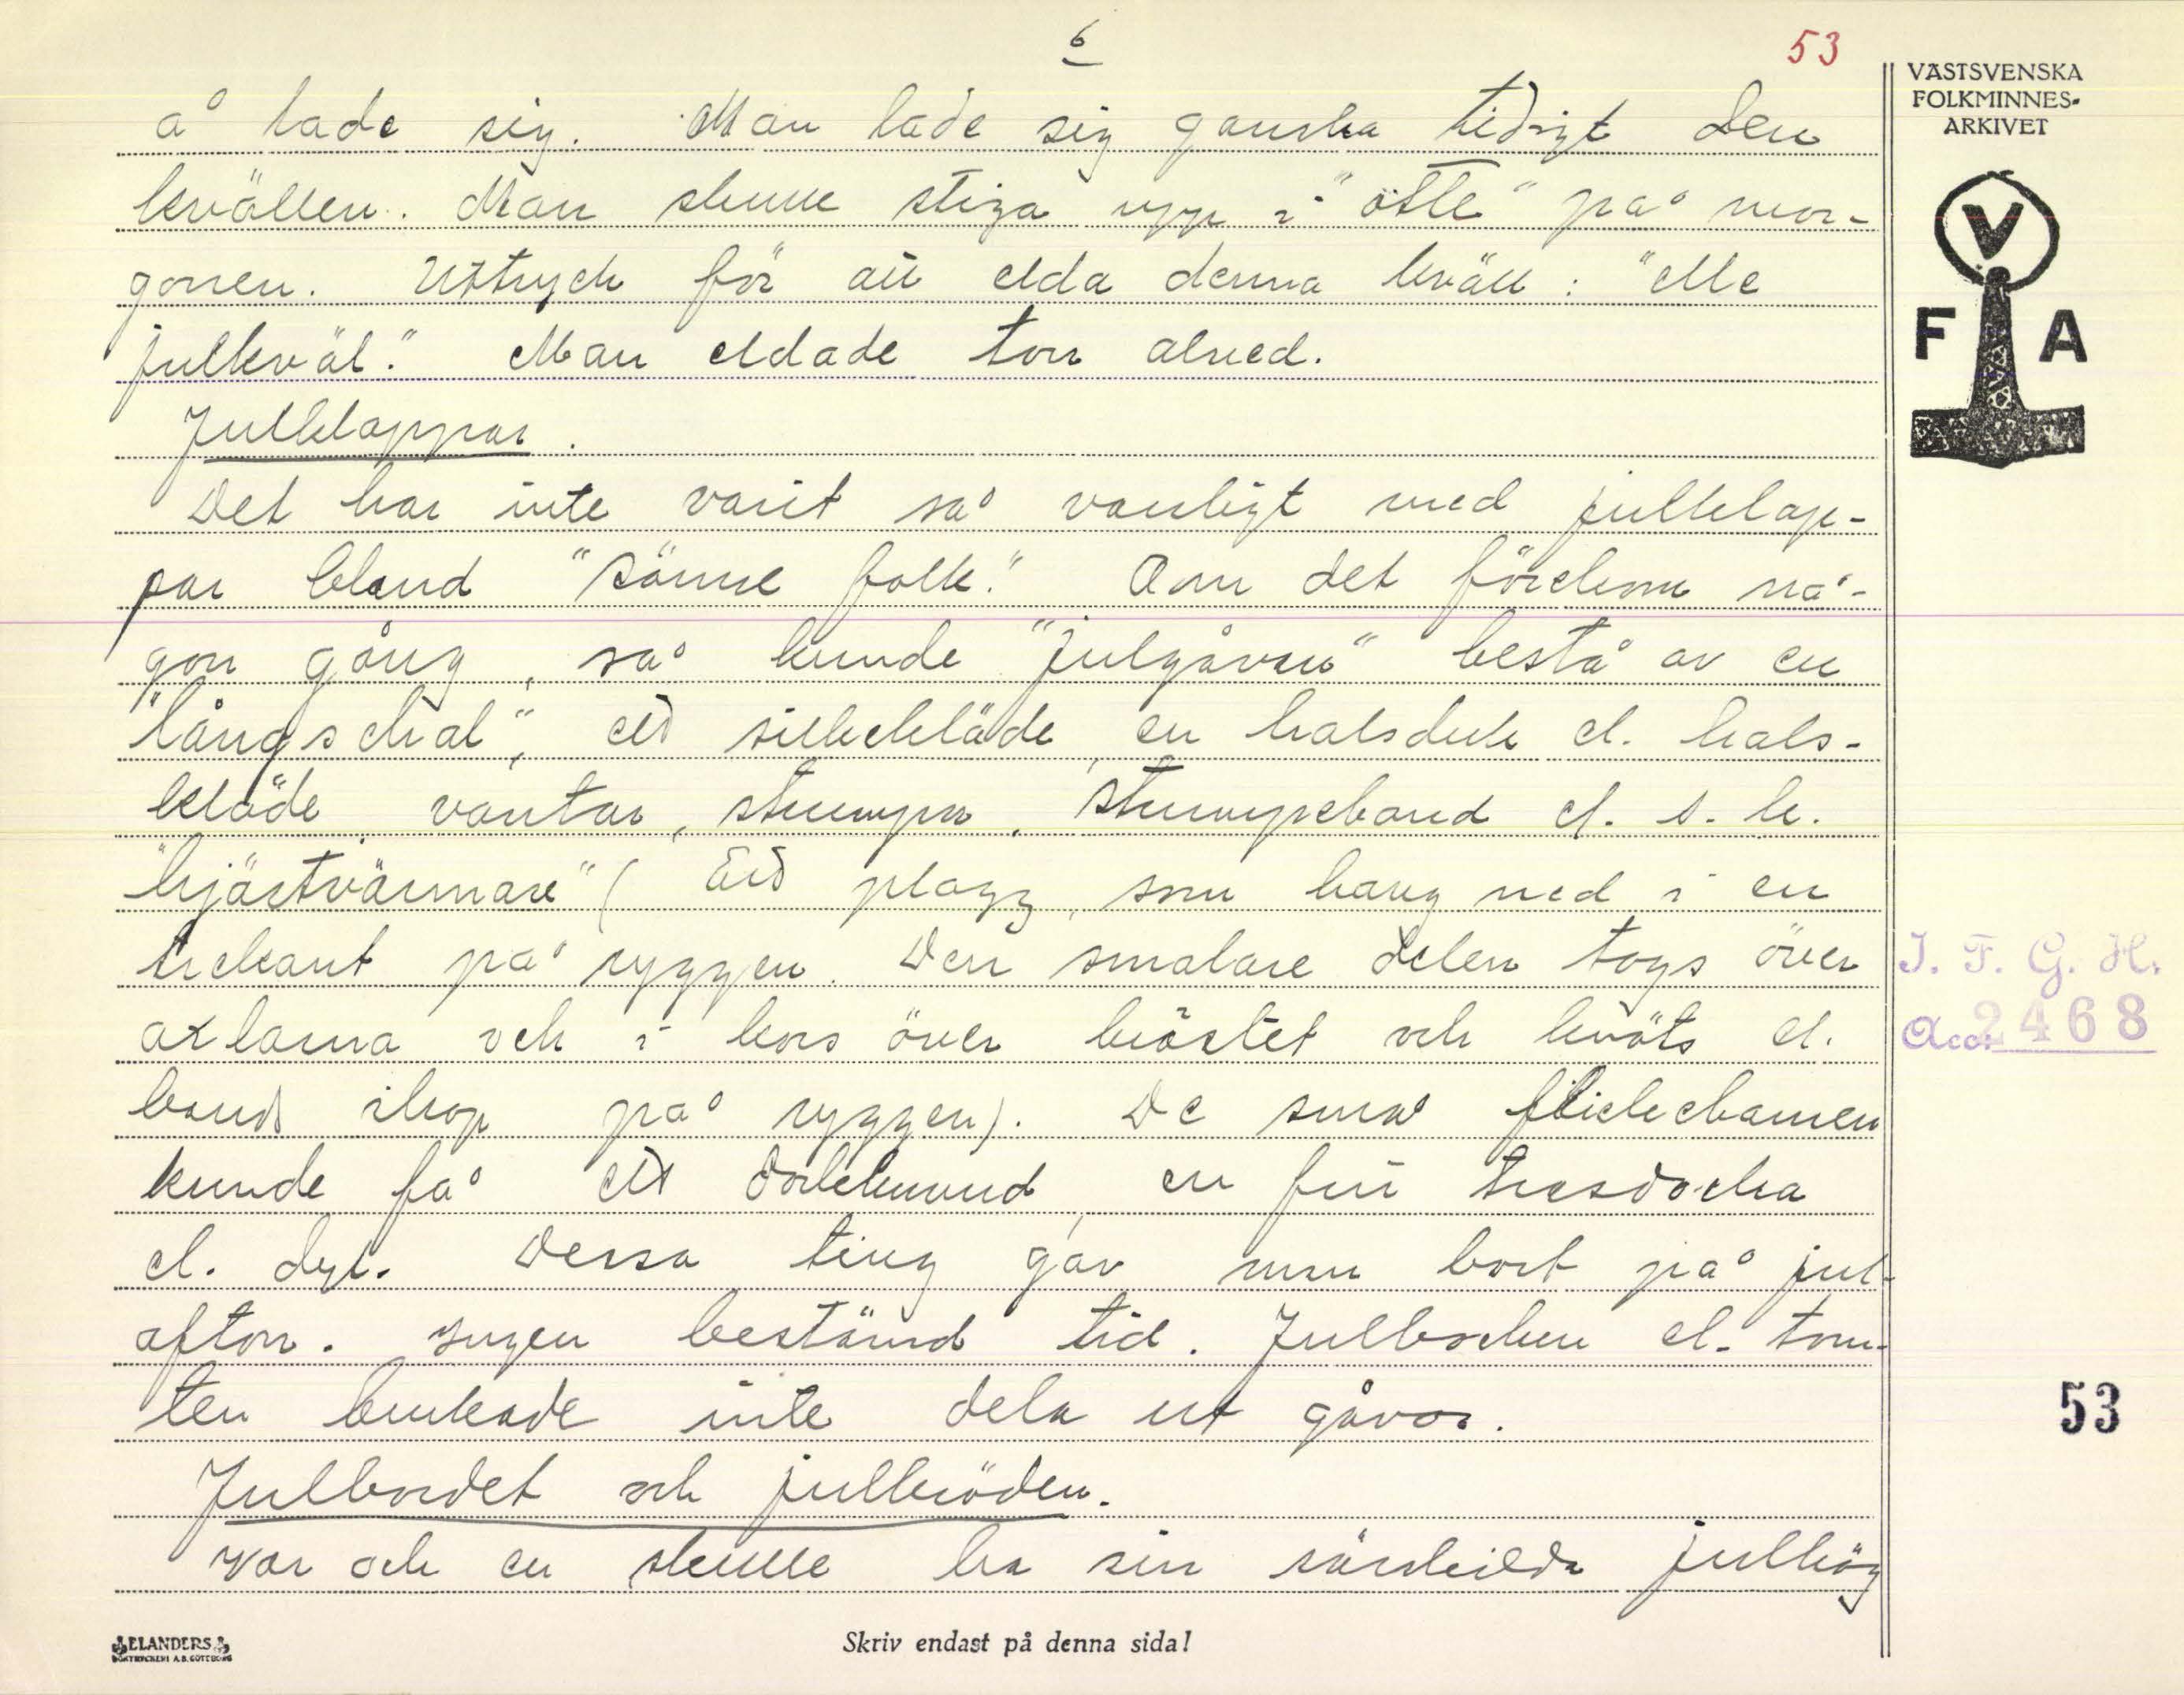 6
53
å lade sig. Man lade sig ganska tidigt den
kvällen. Man skulle stiga upp i "otte" på mor-
gonen. Uttryck för att elda denna kväll: "elle
julkväl." Man eldade torr alved.
Julklappar.
Det har inte varit så vanligt med julklap-
par bland "sämre folk." Om det förekom nå-
gon gång, så kunde "julgåvan" bestå av en
"långschal", ett silkekläde, en halsduk el. hals-
kläde, vantar, strumpor, strumpeband el. s. k.
"hjärtvärmare" (Ett plagg, som hang ned i en
trekant på ryggen. Den smalare delen togs över
axlarna och i kors över bröstet och knöts el.
bands ihop på ryggen). De små flickebarnen
kunde få ett dockhuvud, en fin träsdocka
el. dyl. Dessa ting gav man bort på jul-
afton. Ingen bestämd tid. Julbocken el. tom-
ten brukade inte dela ut gåvor.
Julbordet och julbröden.
Var och en skulle ha sin särskilda julhög
VÄSTSVENSKA
FOLKMINNES-
ARKIVET
V
F A
I. F. G. H.
Acc. 2468
53
ELANDERS
BOKTRYCKERI A.B. GÖTEBORG
Skriv endast på denna sida!